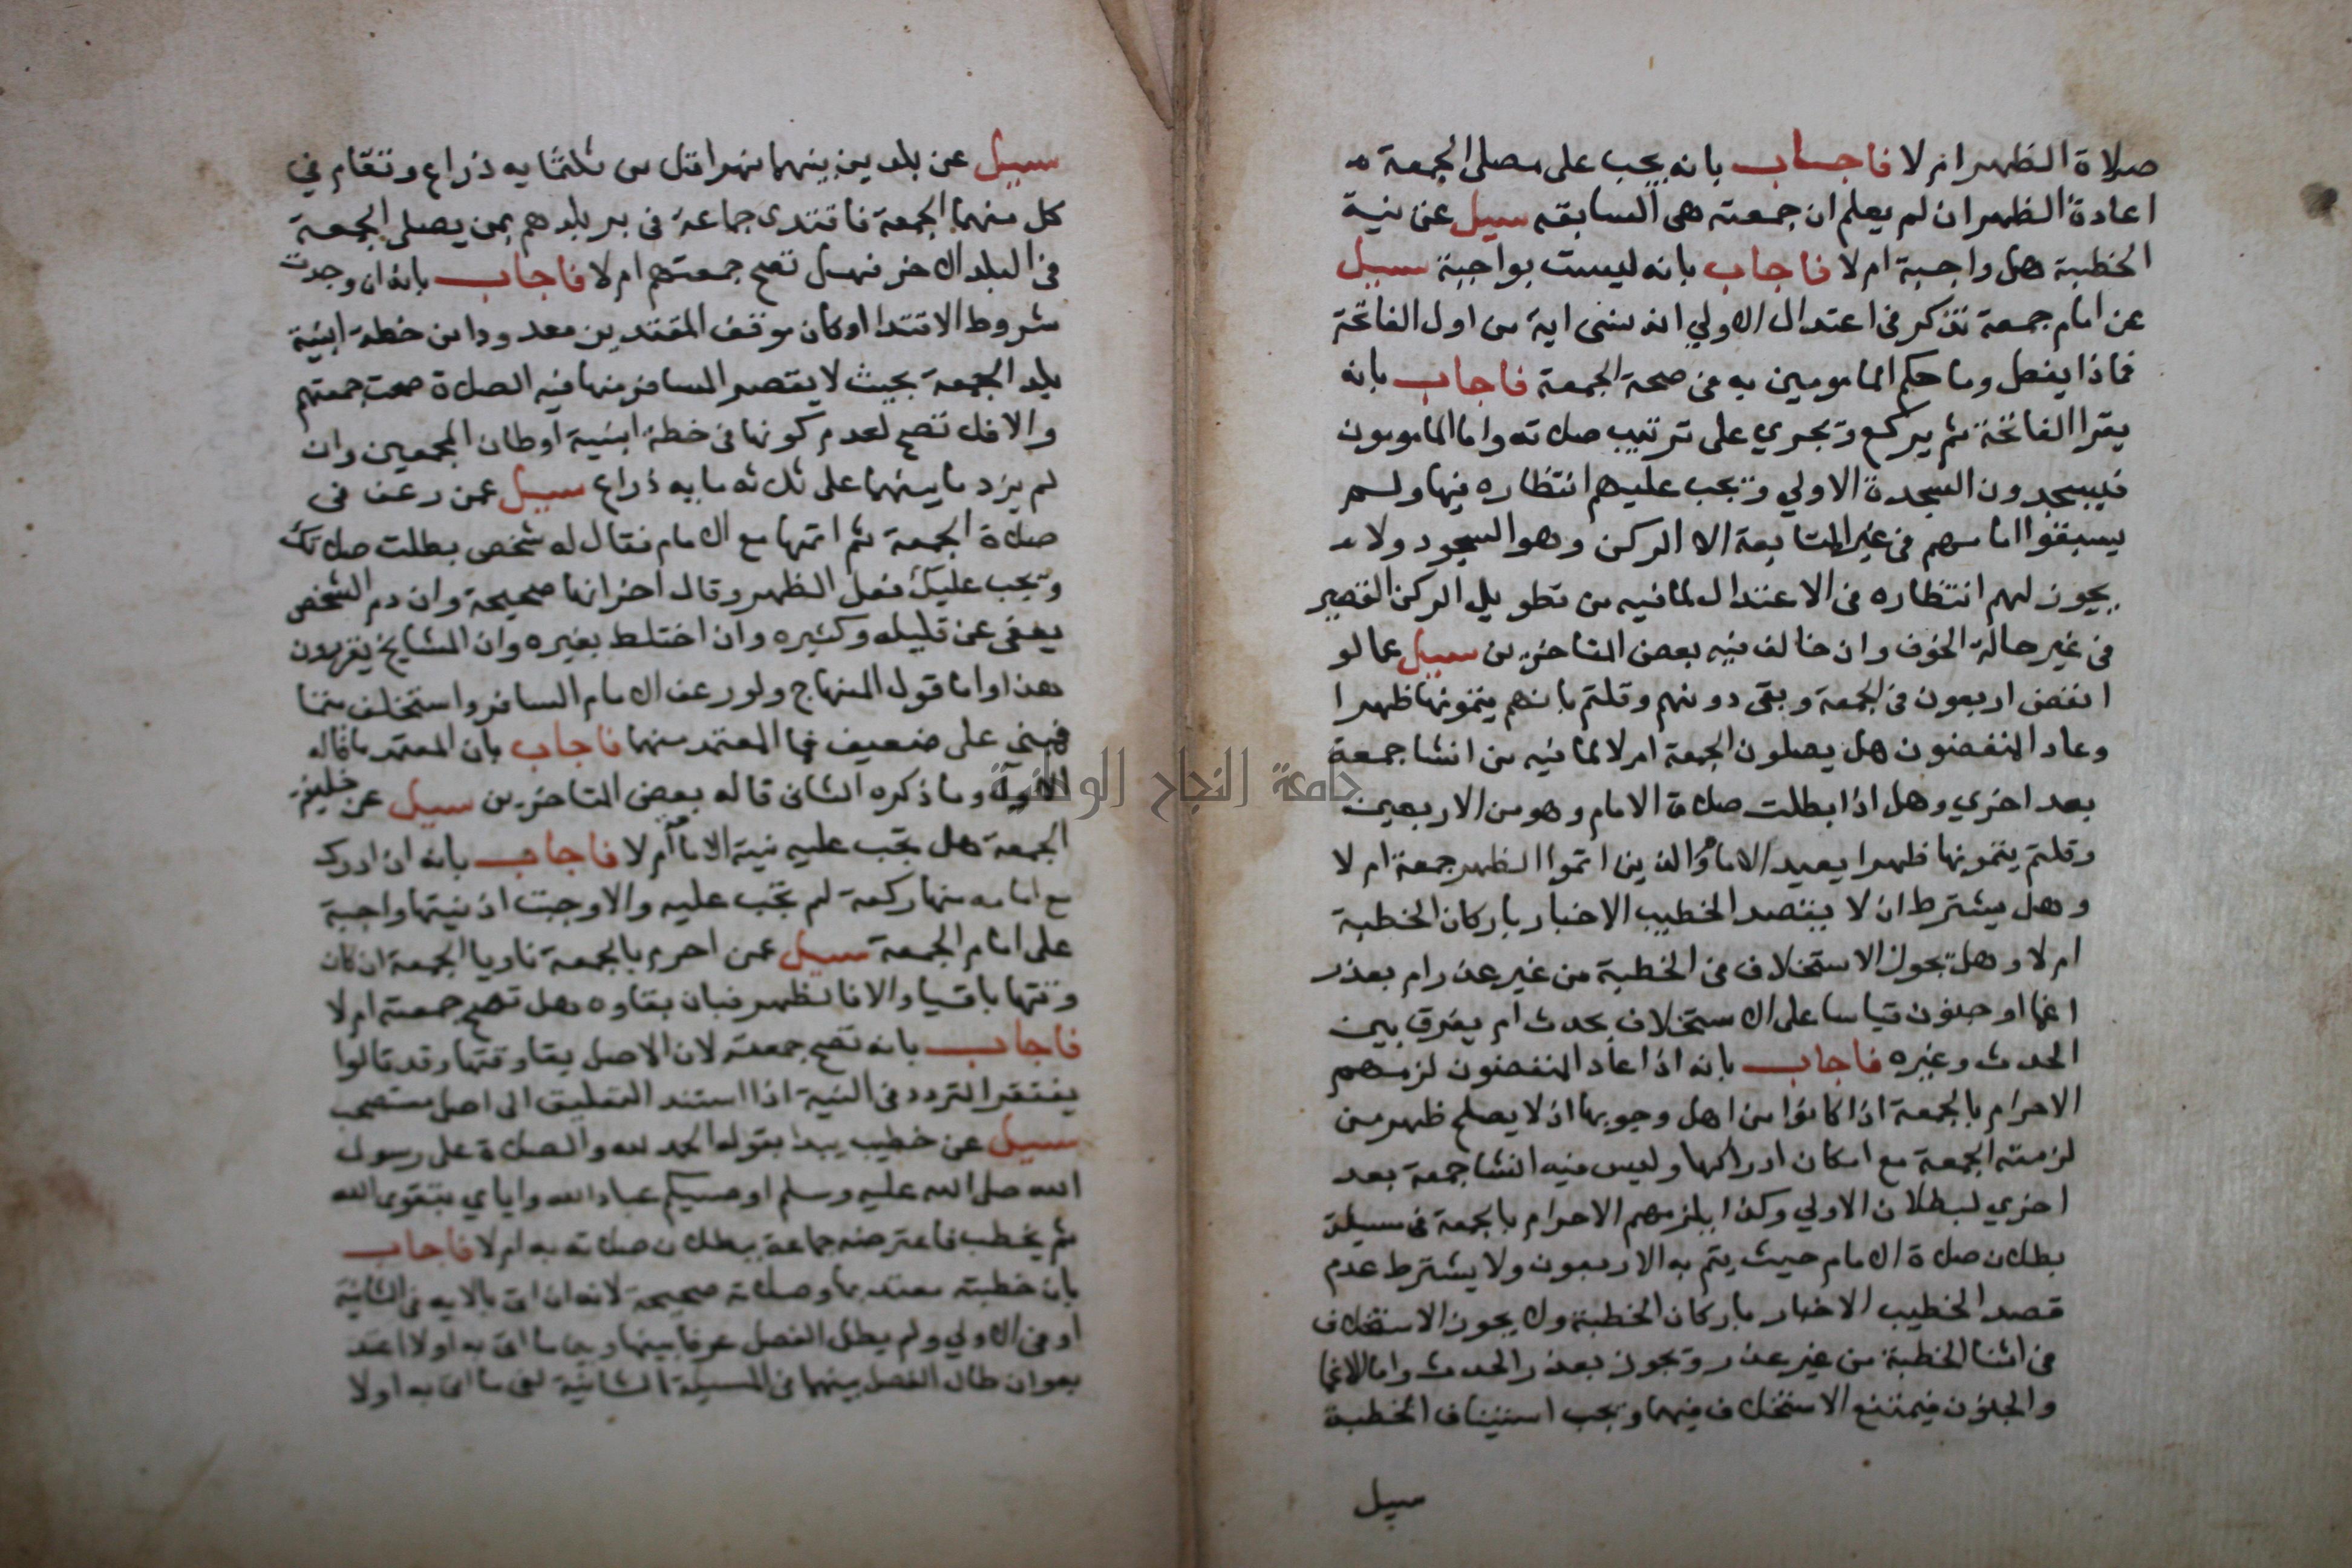 صلاة الظهر ام لا فاجاب بانه يجب على مصلى الجمعة
اعادة الظهر ان لم يعلم ان جمعته هى السابقه سيل عن نية
الخطبة هل واجبة ام لا فاجاب بانه ليست بواجبة سييل
عن امام جمعة تذكر فى اعتدال الاولي انه نسى اية من اول الفاتحة
فماذا يفعل وما حكم المامومين به فى صحة الجمعة فاجاب بانه
يقرا الفاتحة ثم يركع ويجري على ترتيب صلاته واما المامومون
فيسجدون السجدة الاولي ويجب عليهم انتظاره فيها ولم
يسبقوا امامهم فى غير المتابعة الا الركن وهو السجود ولا
يجوز لهم انتظاره فى الاعتدال لما فيه من تطويل الركن القصير
فى غير حالة الخوف وان خالف فيه بعض المتاخرين سييل عما لو
انفض اربعون فى الجمعة وبقى دونهم وقلتم بانهم يتمونها ظهرا
وعاد المنفضون هل يصلون الجمعة ام لا لما فيه من انشا جمعة
بعد اخري وهل اذا بطلت صلاة الامام وهو من الاربعين
وقلتم يتمونها ظهرا يعيد الامام والذين اتموا الظهر جمعة ام لا
وهل يشترط ان لا يقصد الخطيب الاخبار باركان الخطبة
ام لا وهل يجوز الاستخلاف فى الخطبة من غير عذر ام بعذر
اغما او جنون قياسا على الاستخلاف بحدث ام يفرق بين
الحدث وغيره فاجاب بانه اذا عاد المنفضون لزمهم
الاحرام بالجمعة اذا كانوا من اهل وجوبها اذ لا يصلح ظهر من
لزمته الجمعة مع امكان ادراكها وليس فيه انشا جمعة بعد
اخري لبطلان الاولي وكذا يلزمهم الاحرام بالجمعة فى مسيلة
بطلان صلاة الامام حيث يتم به الاربعون ولا يشترط عدم
قصد الخطيب الاخبار باركان الخطبة ولا يجوز الاستخلاف
فى اثنا الخطبة من غير عذر ويجوز بعذر الحدث واما الاغما
والجنون فيمتنع الاستخلاف فيهما ويجب استيناف الخطبة
سيل
سييل عن بلدين بينهما نهر اقل من ثلثمايه ذراع وتقام في
كل منهما الجمعة فاقتدى جماعة فى بر بلدهم بمن يصلى الجمعة
فى البلد الاخر فهل تصح جمعتهم ام لا فاجاب بانه ان وجدت
شروط الاقتدا وكان موقف المقتدين معدودا من خطة ابنية
بلد الجمعة بحيث لا يقصر المسافر منها فيه الصلاة صحت جمعتهم
والا فلا تصح لعدم كونها فى خطة ابنية اوطان المجمعين وان
لم يزد ما بينهما على ثلاثه مايه ذراع سييل عمن رعف فى
صلاة الجمعة ثم اتمها مع الامام فقال له شخص بطلت صلاتك
ويجب عليك فعل الظهر وقال اخر انها صحيحة وان دم الشخص
يعفى عن قليله وكثيره وان اختلط بغيره وان المشايخ يقررون
هذا واما قول المنهاج ولو رعف الامام المسافر واستخلف متما
فهبنى على ضعيف فما المعتمد منهما فاجاب بان المعتمد ما قاله
الاول وما ذكره الثانى قاله بعض المتاخرين سييل عن خليفة
الجمعة هل يجب عليه نية الامامة ام لا فاجاب بانه ان ادرك
مع امامه منها ركعة لم تجب عليه والا وجبت اذ نيتها واجبة
على امام الجمعة سييل عمن احرم بالجمعة ناويا الجمعة ان كان
وقتها باقيا والا فالظهر فبان بقاوه هل تصح جمعته ام لا
فاجاب بانه تصح جمعته لان الاصل بقا وقتها وقد قالوا
يغتفر التردد فى النية اذا استند التعليق الى اصل مستصحب
سييل عن خطيب يبدا بقوله الحمد لله والصلاة على رسول
الله صلى الله عليه وسلم اوصيكم عباد الله واياي بتقوى الله
ثم يخطب فاعترضه جماعة ببطلان صلاته به ام لا فاجاب
بان خطبته معتد بها وصلاته صحيحة لانه ان اتى بالايه فى الثانية
او فى الاولي ولم يطل الفصل عرفا بينها وبين ما اتى به اولا اعتد
به وان طال الفصل بينهما فى المسيلة الثانية لغى ما اتى به اولا
جامعة النجاح الوطنية